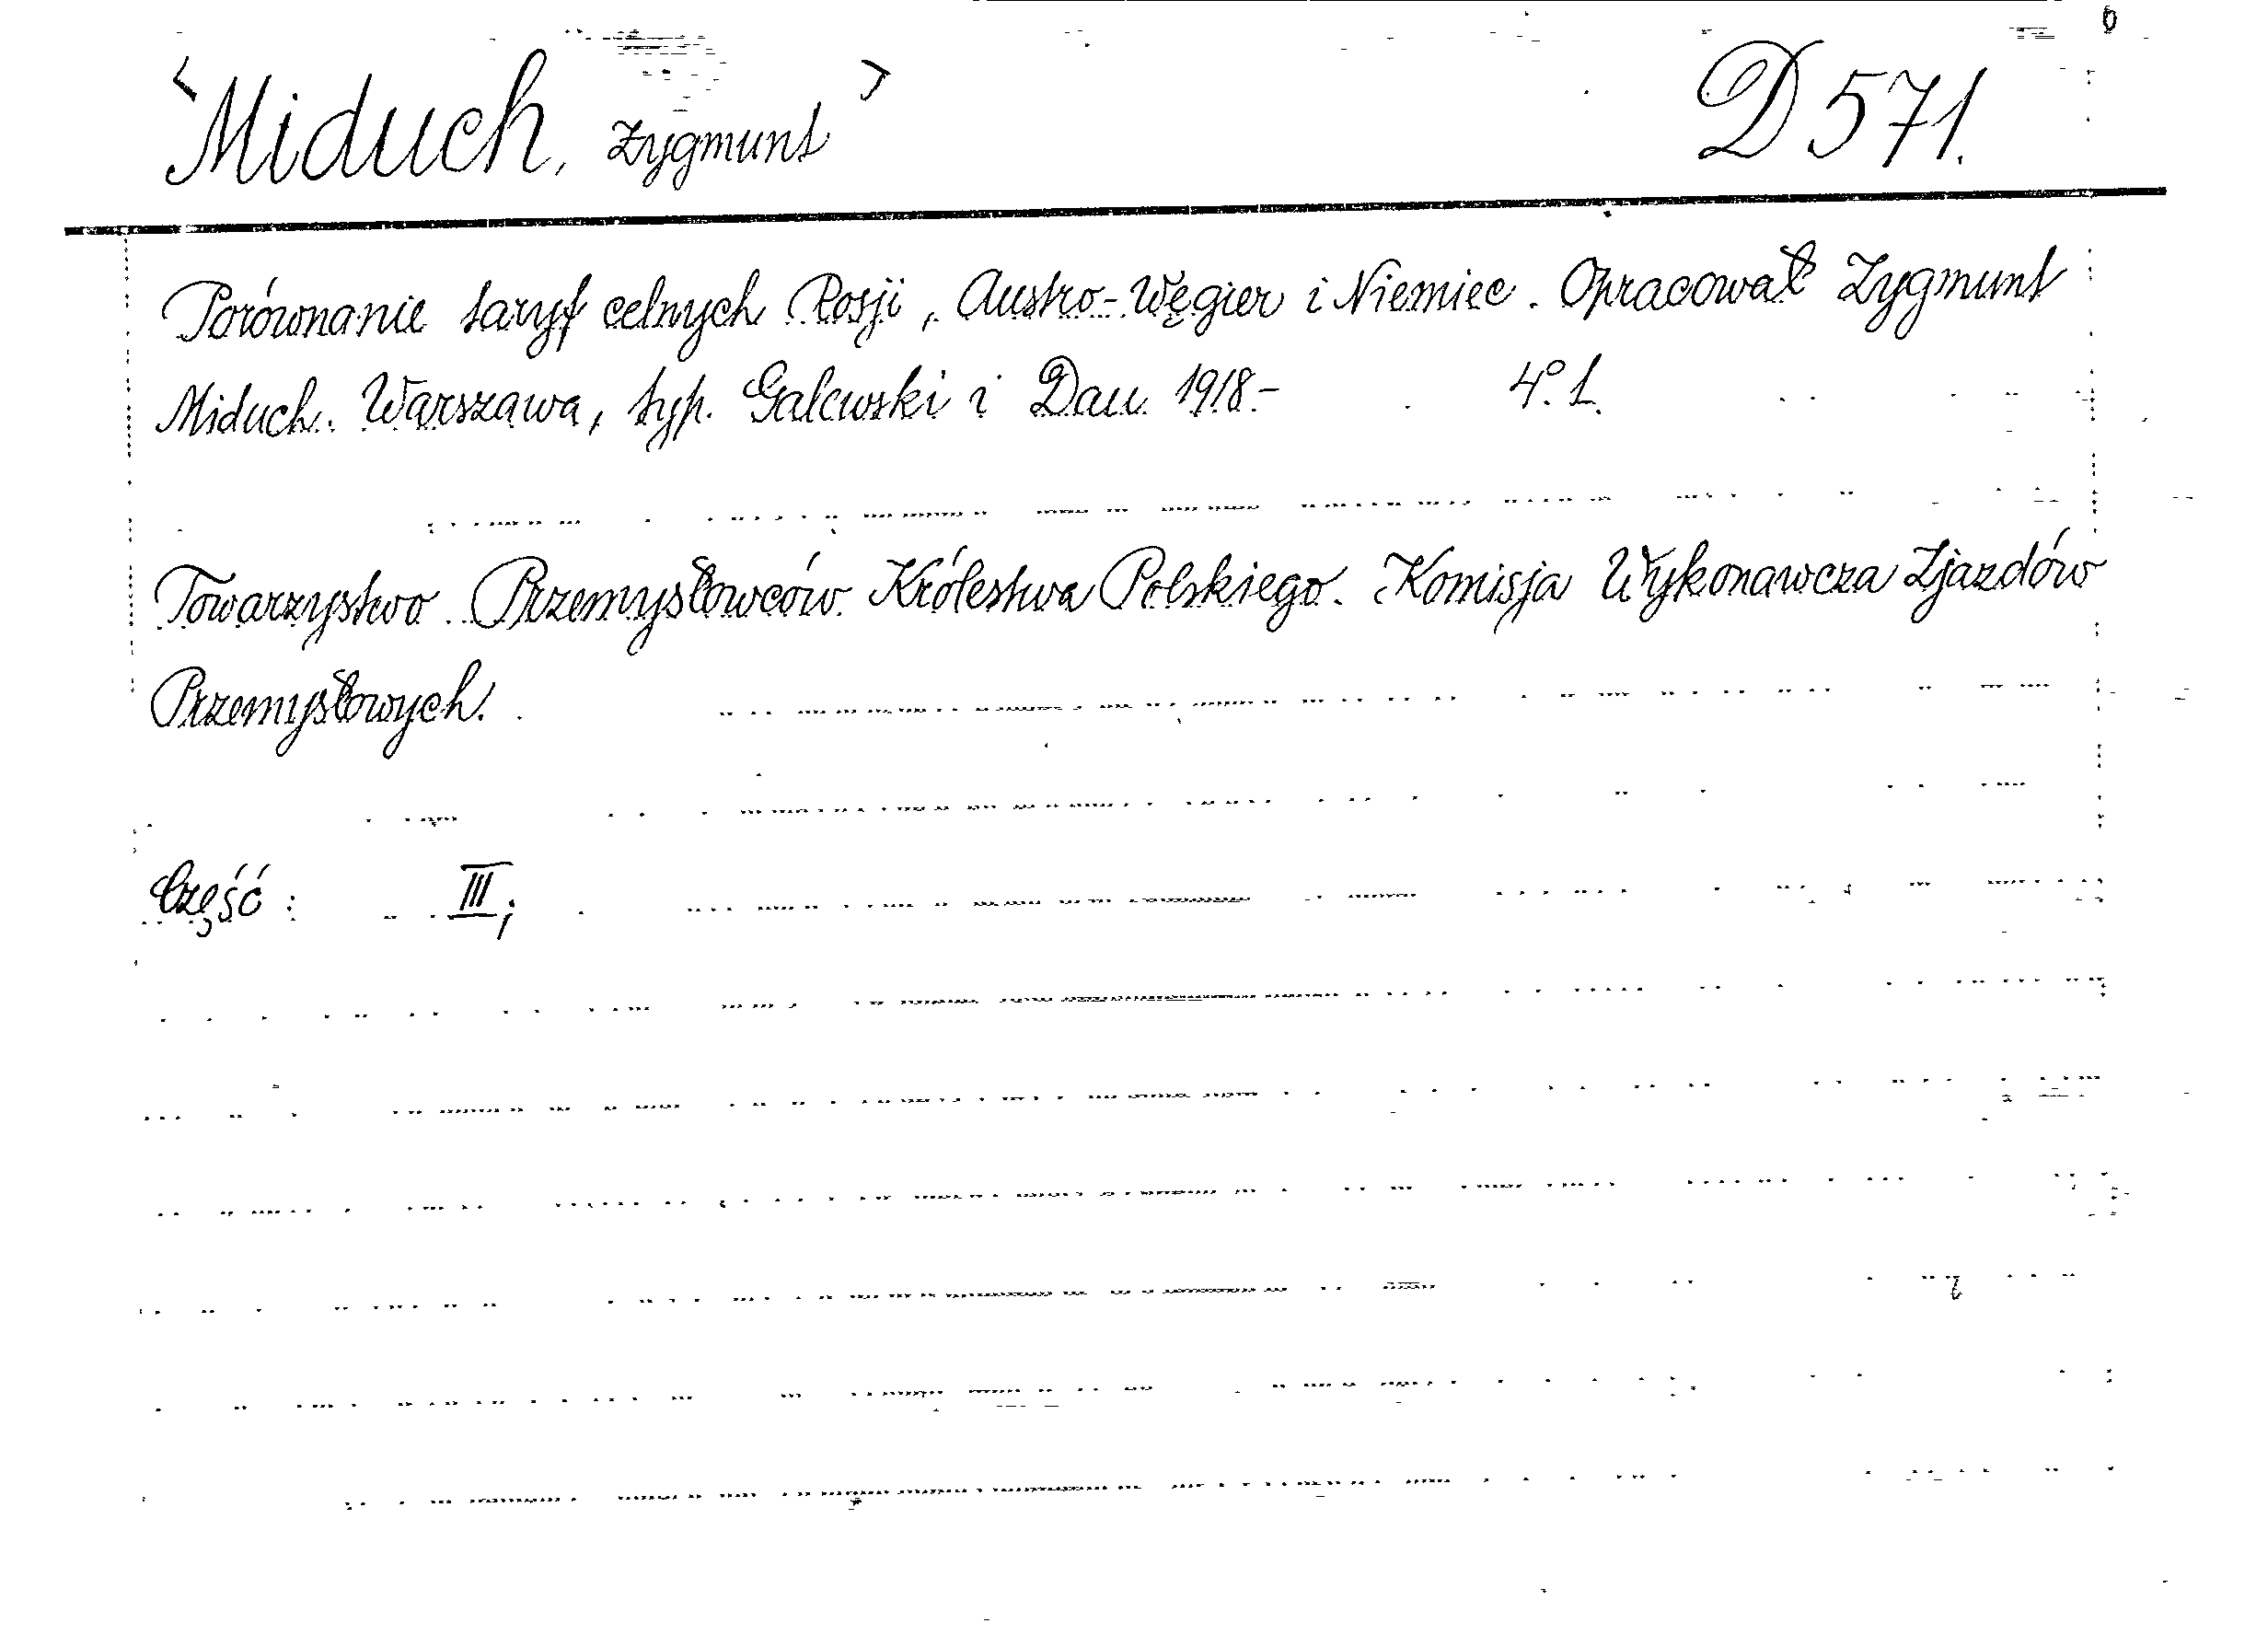 <Miduch, Zygmunt> D 571.
Porównanie taryf celnych Rosji, Austro-Węgier i Niemiec. Opracował Zygmunt
Miduch. Warszawa, typ. Galewski i Dau 1918.- 4° L.
Towarzystwo Przemysłowców Królestwa Polskiego. Komisja Wykonawcza Zjazdów
Przemysłowych.
Część: III;